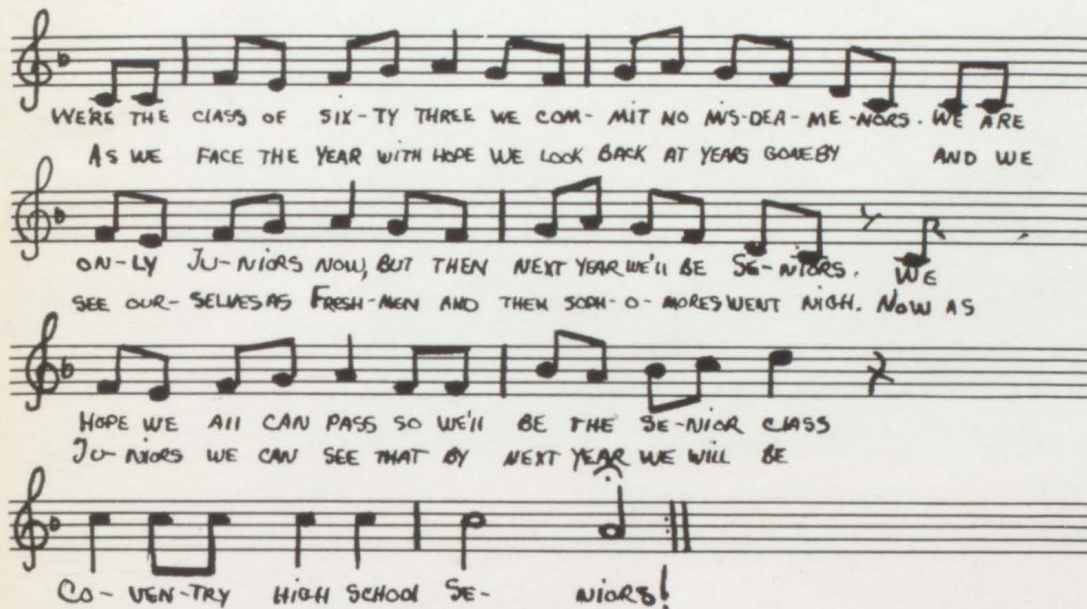 WE'RE THE CLASS OF SIX-TY THREE WE COM-MIT NO MIS-DEA-ME-NORS. WE ARE
AS WE FACE THE YEAR WITH HOPE WE LOOK BACK AT YEARS GONE BY AND WE
ON-LY JU-NIORS NOW, BUT THEN NEXT YEAR WE'll BE SE-NIORS. WE
SEE OUR-SELVES AS FRESH-MEN AND THEN SOPH-O-MORES WENT NIGH. NOW AS
HOPE WE All CAN PASS SO WE'll BE THE SE-NIOR CLASS
JU-NIORS WE CAN SEE THAT BY NEXT YEAR WE WILL BE
CO-VEN-TRY HIGH SCHOOl SE-NIORS!